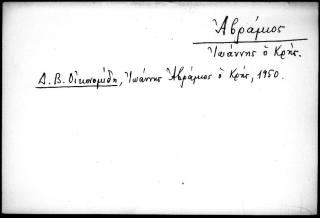 Ἀβράμιος
Ἰωάννης ὁ Κρής.
Δ. Β. Οἰκονομίδη, Ἰωάννης Ἀβράμιος ὁ Κρής, 1950.